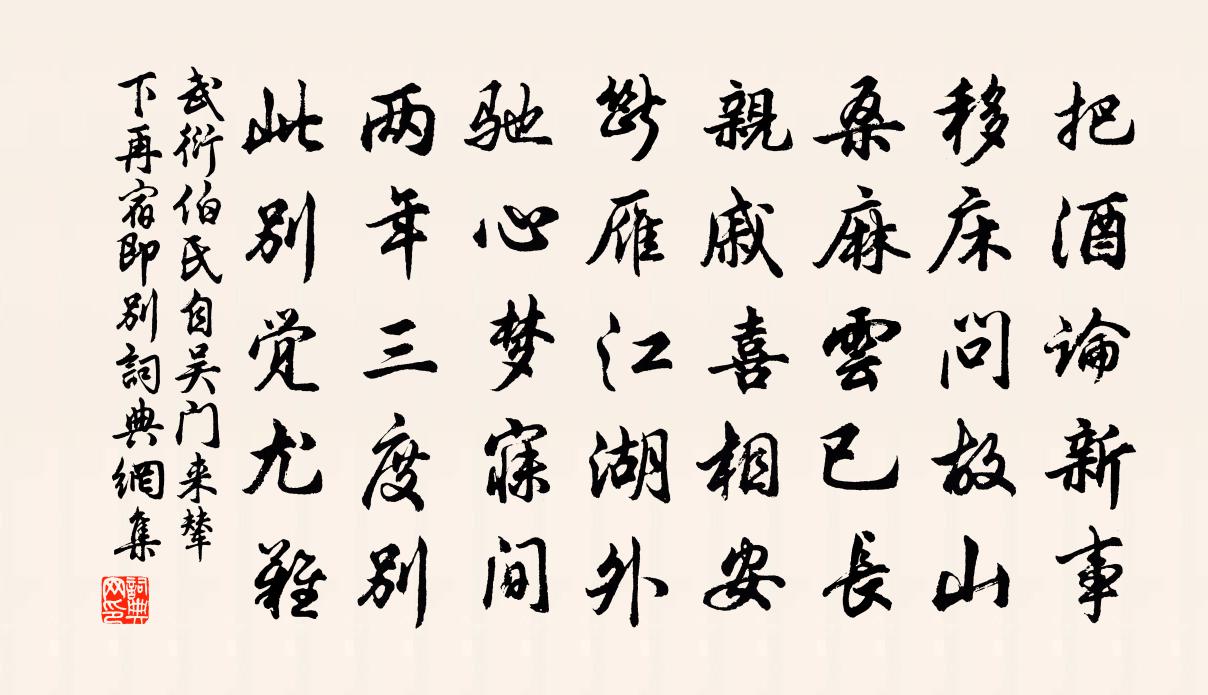 把酒論新事
移床问故山
桑麻雲已長
親戚喜相安
断雁江湖外
驰心梦寐间
两年三度别
此别觉尤難
武衍伯氏自吴门来辇
下再宿即别詞典網集
詞典网印